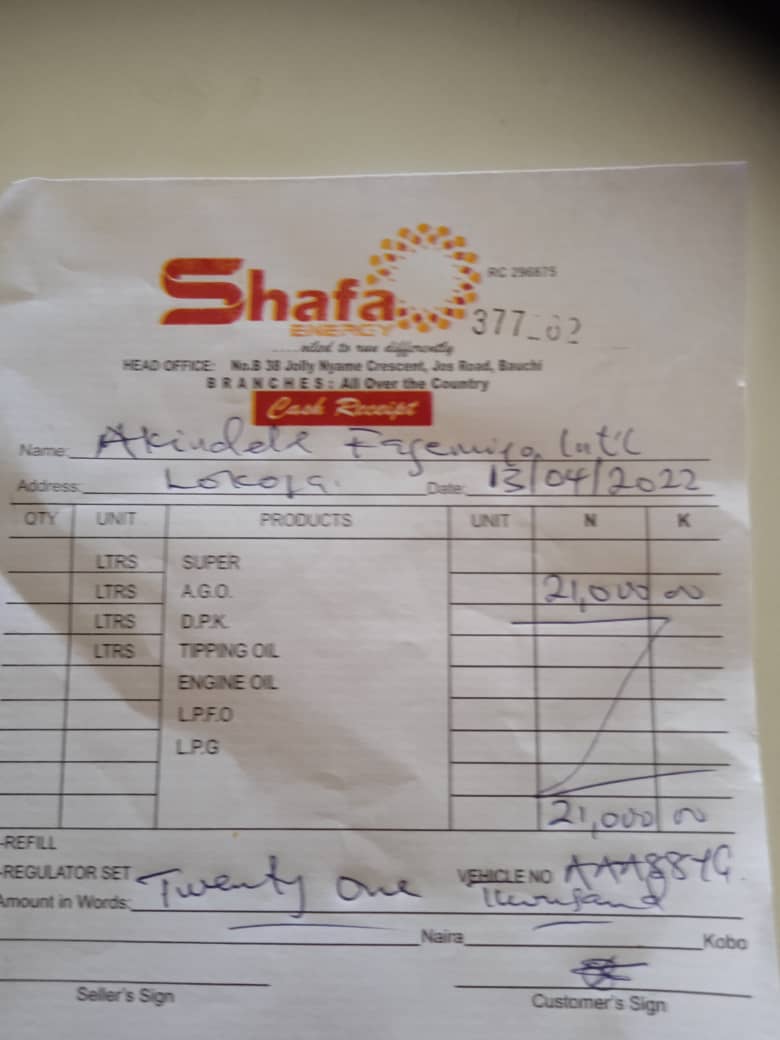 Shafa
ENERGY
RC 296675
377 02
to run differently
HEAD OFFICE: No.B 38 Jolly Nyame Crescent, Jos Road, Bauchi
BRANCHES: All Over the Country
Cash Receipt
Name: Akindele Int'l
Address: Lokoja. Date: 13/04/2022
QTY UNIT PRODUCTS UNIT N K
LTRS SUPER
LTRS A.G.O. 21,000 00
LTRS D.P.K.
LTRS TIPPING OIL
ENGINE OIL
L.P.F.O
L.P.G
21,000 00
-REFILL
-REGULATOR SET VEHICLE NO
Amount in Words: Twenty One thousand
Naira Kobo
Seller's Sign Customer's Sign